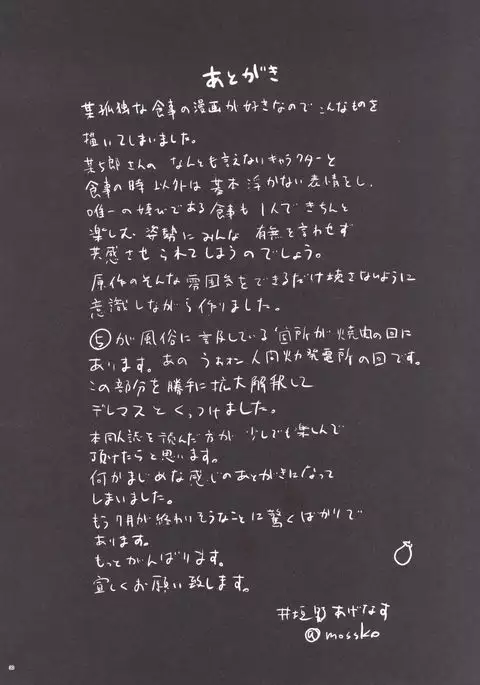 あとがき
某孤独な食事の漫画が好きなので こんなものを
描いてしまいました。
某5郎さんの なんとも言えないキャラクターと
食事の時以外は基本浮かない表情をし、
唯一の喜びである食事も1人できちんと
楽しむ姿勢にみんな 有無を言わせず
共感させられてしまうのでしょう。
原作のそんな雰囲気をできるだけ壊さないように
意識しながら作りました。
⑤が風俗に言及している箇所が焼肉の回に
あります。あの うぉォン 人間火力発電所の回です。
この部分を勝手に拡大解釈して
デレマスとくっつけました。
本同人誌を読んだ方が 少しでも楽しんで
頂けたらと思います。
何かまじめな感じのあとがきになって
しまいました。
もう7月が終わりそうなことに驚くばかりで
あります。
もっとがんばります。
宜しくお願い致します。
井垣野あげなす
@mossko